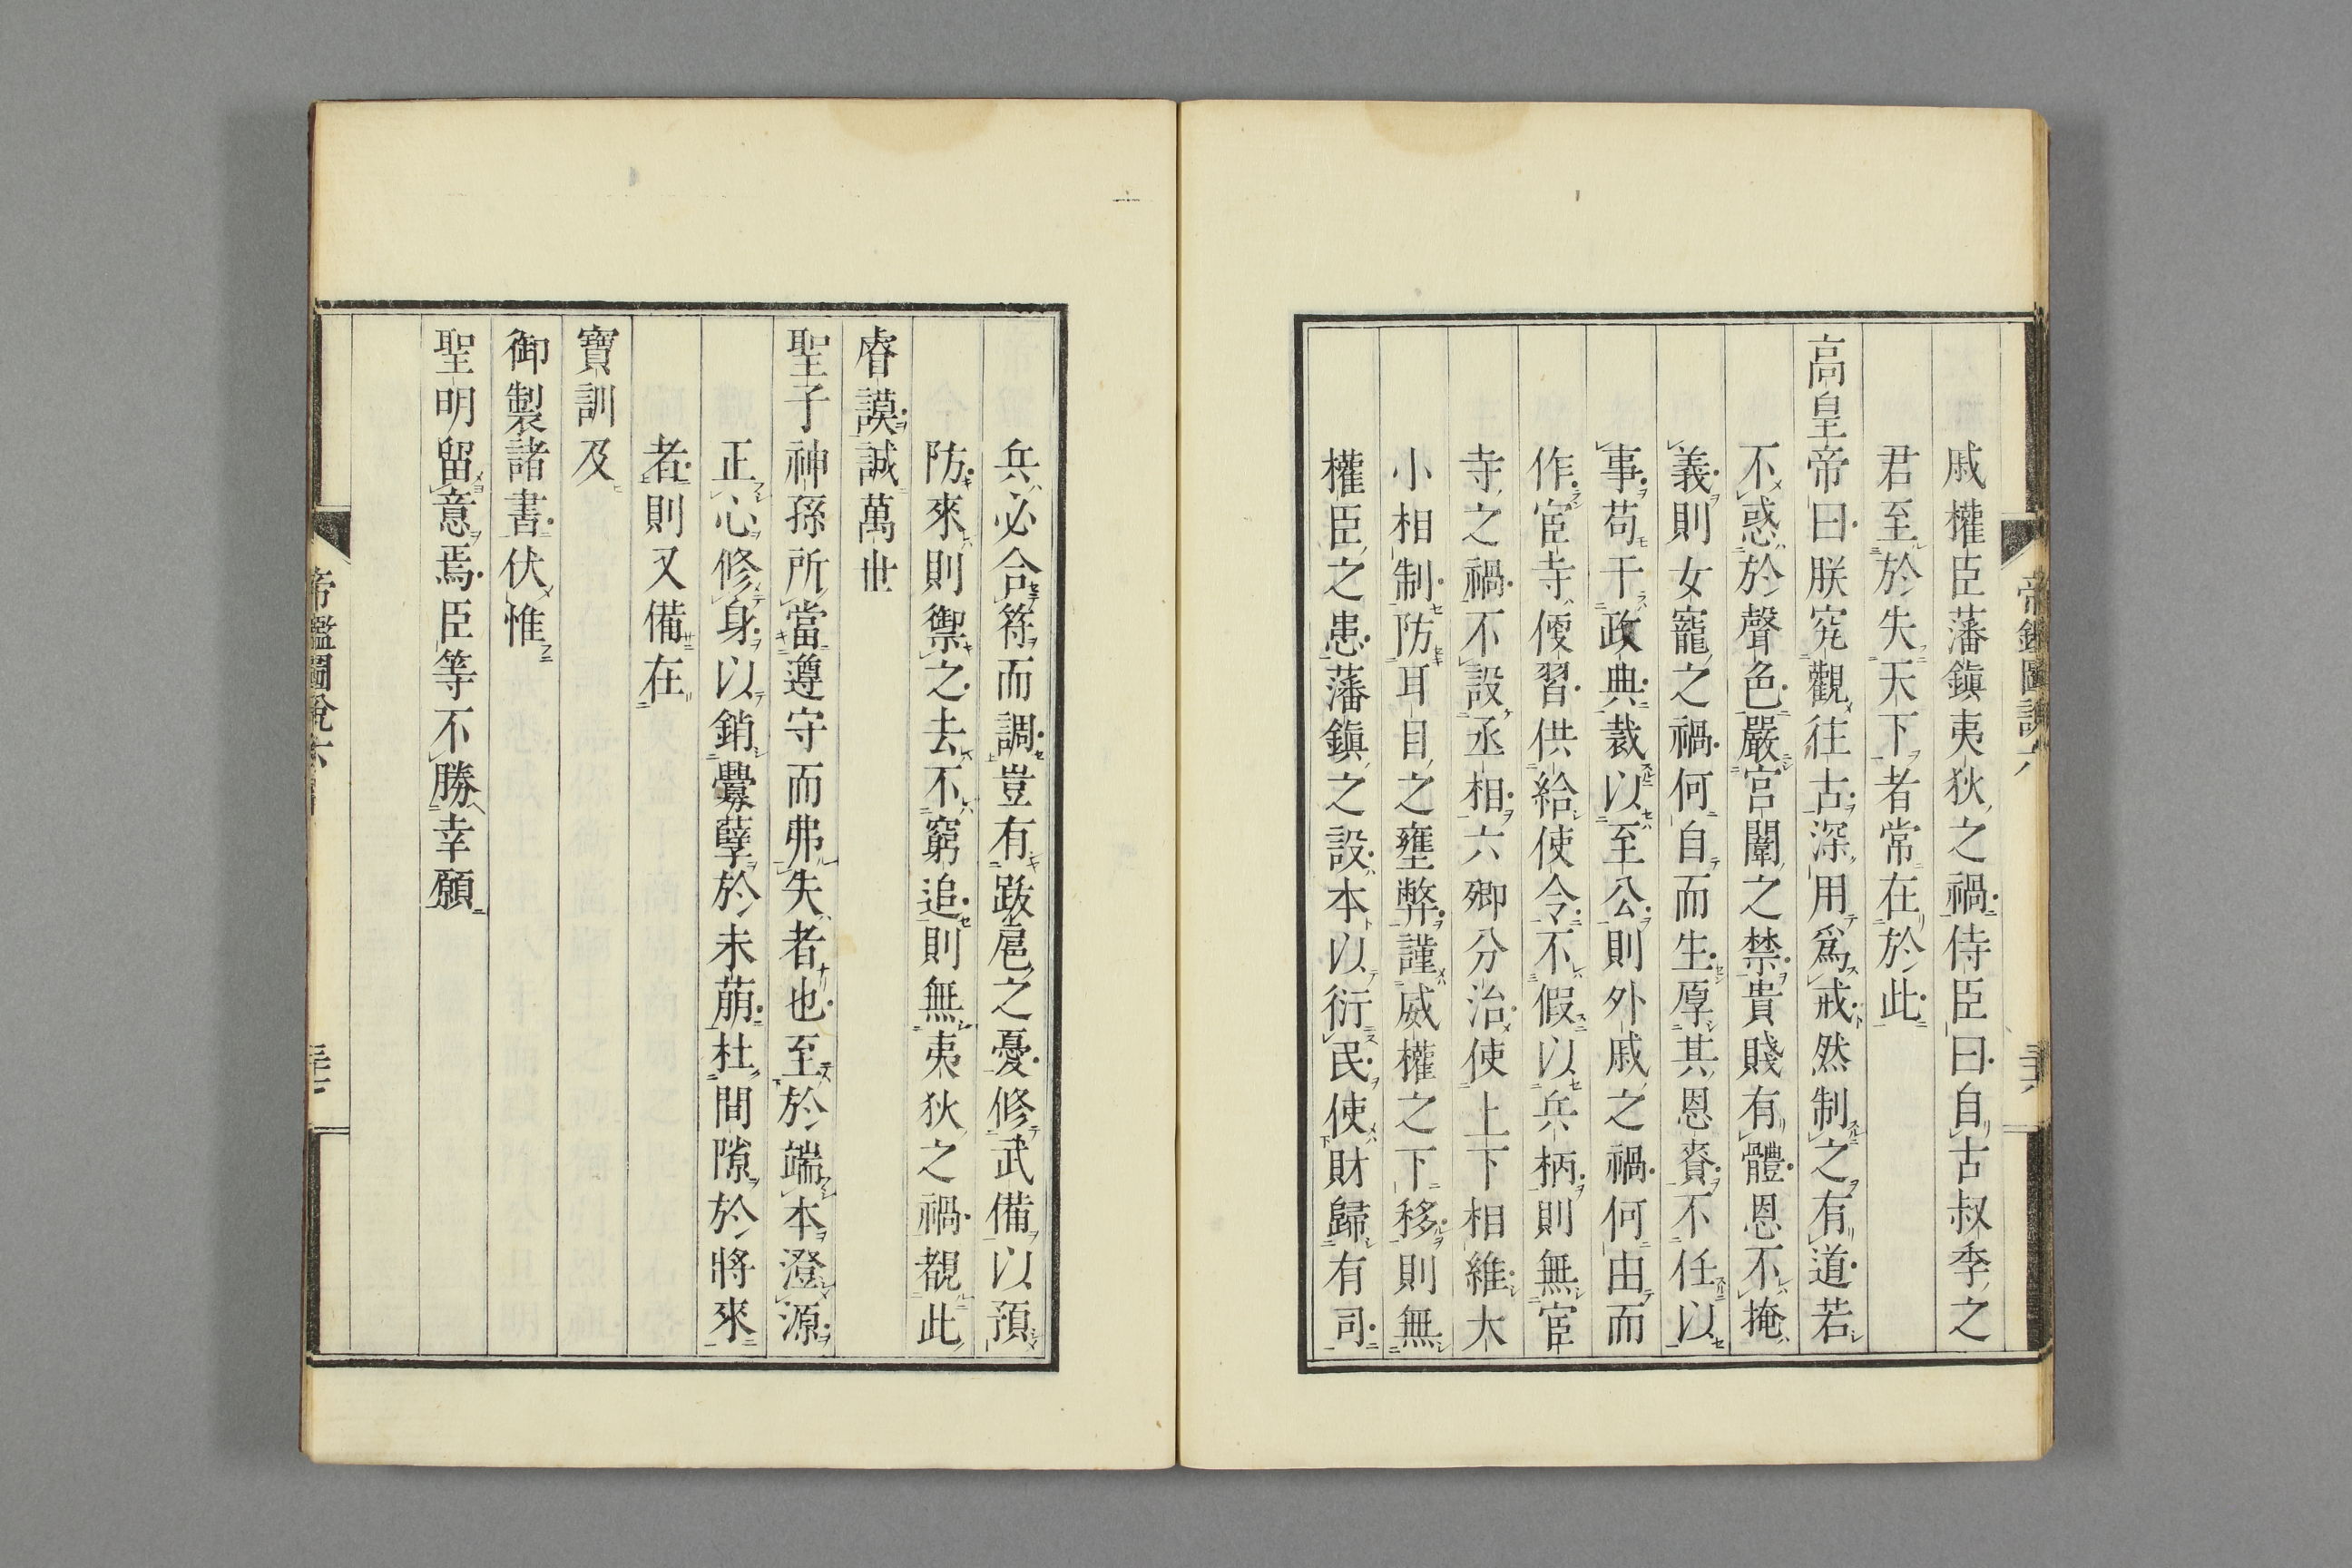 戚權臣藩鎭夷狄之禍侍臣曰自古叔季之
君至於失天下者常在於此
高皇帝曰朕究觀徃古深用爲戒然制之有道若
不惑於聲色嚴宮闈之禁貴賤有體恩不掩
義則女寵之禍何自而生厚其恩賚不任以
事苟干政典裁以至公則外戚之禍何由而
作宦寺便習供給使令不假以兵柄則無宦
寺之禍不設丞相六卿分治使上下相維大
小相制防耳目之壅弊謹威權之下移則無
權臣之患藩鎭之設本以衍民使財歸有司
兵必合符而調豈有跋扈之憂修武備以預
防來則禦之去不窮追則無夷狄之禍覩此
睿謨誠萬世
聖子神孫所當遵守而弗失者也至於端本澄源
正心修身以銷釁孽於未萠杜間隙於將來
者則又備在
寶訓及
御製諸書伏惟
聖明留意焉臣等不勝幸願
帝鑑圖說六